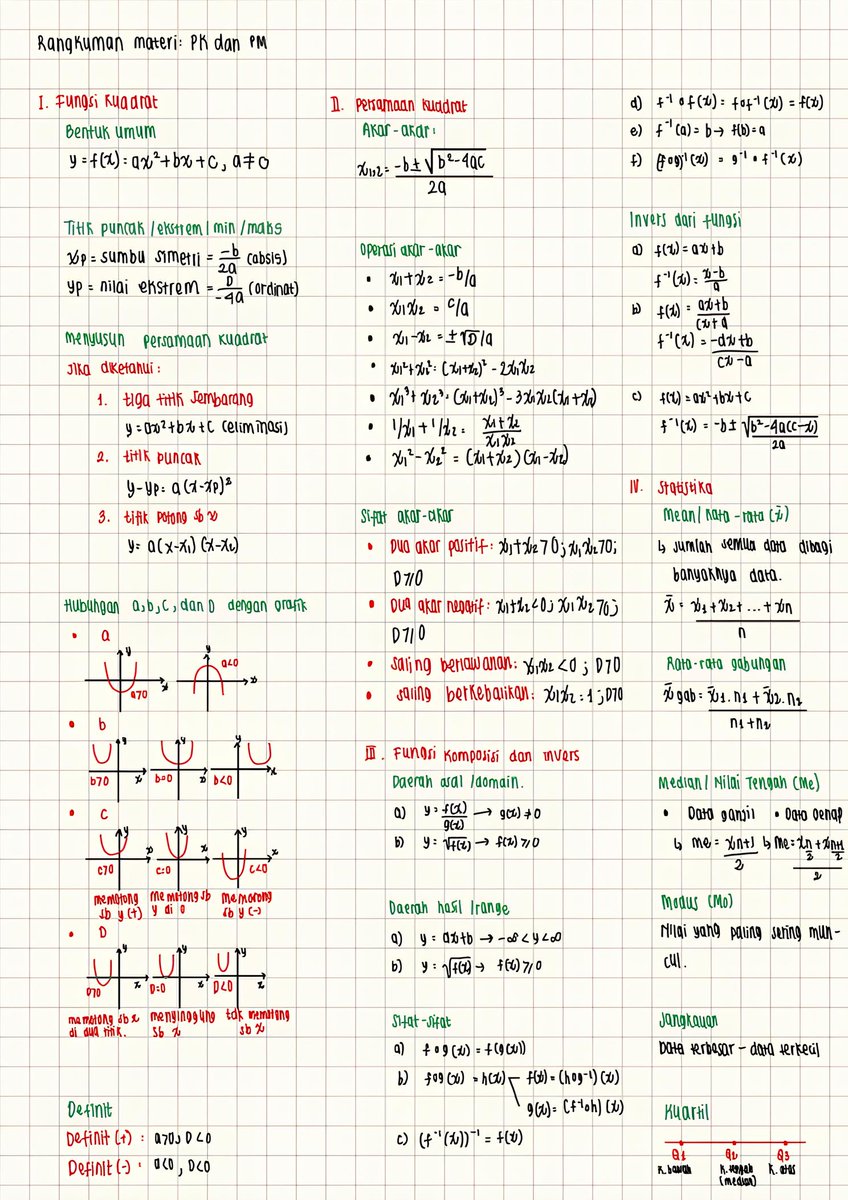 Rangkuman materi: PK dan PM
I. Fungsi Kuadrat
Bentuk umum
y = f(x) = ax² + bx + c, a ≠ 0
Titik puncak /ekstrem/min/maks
xp = sumbu simetri = -b/2a (absis)
yp = nilai ekstrem = D/-4a (ordinat)
Menyusun Persamaan Kuadrat
Jika diketahui :
1. tiga titik sembarang
y = ax² + bx + c (eliminasi)
2. titik puncak
y - yp = a (x - xp)²
3. titik potong sb x
y = a (x - x₁) (x - x₂)
Hubungan a, b, c, dan D dengan grafik
• a
y y
a>0 x a<0 x
• b
y y y
b>0 x b=0 x b<0 x
• c
y x y x y
c>0 x c=0 c<0
memotong sb y (+) memotong sb y di 0 memotong sb y (-)
• D
y y y
D>0 x D=0 x D<0 x
memotong sb x di dua titik. menyinggung sb x tdk memotong sb x
Definit
Definit (+) : a>0, D<0
Definit (-) : a<0, D<0
II. Persamaan Kuadrat
Akar-akar:
x₁,₂ = -b ± √b² - 4ac / 2a
Operasi akar-akar
• x₁ + x₂ = -b/a
• x₁x₂ = c/a
• x₁ - x₂ = ± √D/a
• x₁² + x₂² = (x₁+x₂)² - 2x₁x₂
• x₁³ + x₂³ = (x₁+x₂)³ - 3x₁x₂(x₁+x₂)
• 1/x₁ + 1/x₂ = x₁+x₂ / x₁x₂
• x₁² - x₂² = (x₁+x₂) (x₁-x₂)
Sifat akar-akar
• Dua akar positif: x₁+x₂ > 0 ; x₁x₂ > 0 ;
D ≥ 0
• Dua akar negatif: x₁+x₂ < 0 ; x₁x₂ > 0 ;
D ≥ 0
• saling berlawanan: x₁x₂ < 0 ; D > 0
• saling berkebalikan: x₁x₂ = 1 ; D > 0
III. Fungsi Komposisi dan invers
Daerah asal /domain.
a) y = f(x)/g(x) → g(x) ≠ 0
b) y = √f(x) → f(x) ≥ 0
Daerah hasil /range
a) y = ax+b → -∞ < y < ∞
b) y = √f(x) → f(x) ≥ 0
Sifat-sifat
a) f o g (x) = f(g(x))
b) fog (x) = h(x) f(x) = (h o g⁻¹) (x)
g(x) = (f⁻¹ o h) (x)
c) (f⁻¹(x))⁻¹ = f(x)
d) f⁻¹ o f(x) = f o f⁻¹(x) = f(x)
e) f⁻¹(a) = b → f(b) = a
f) (f o g)⁻¹(x) = g⁻¹ o f⁻¹(x)
Invers dari fungsi
a) f(x) = ax+b
f⁻¹(x) = x-b / a
b) f(x) = ax+b / cx+d
f⁻¹(x) = -dx+b / cx-a
c) f(x) = ax² + bx + c
f⁻¹(x) = -b ± √b² - 4a(c-x) / 2a
IV. Statistika
Mean/ Rata-rata (x̄)
↳ jumlah semua data dibagi
banyaknya data.
x̄ = x₁ + x₂ + ... + xn / n
Rata-rata gabungan
x̄ gab = x̄₁ . n₁ + x̄₂ . n₂ / n₁ + n₂
Median/ Nilai Tengah (Me)
• Data ganjil • Data genap
↳ me = xn+1 / 2 ↳ Me = xn/2 + xn+1/2 / 2
Modus (Mo)
Nilai yang paling sering mun-
cul.
Jangkauan
Data terbesar - data terkecil
Kuartil
Q1 Q2 Q3
K. bawah K. tengah (median) K. atas